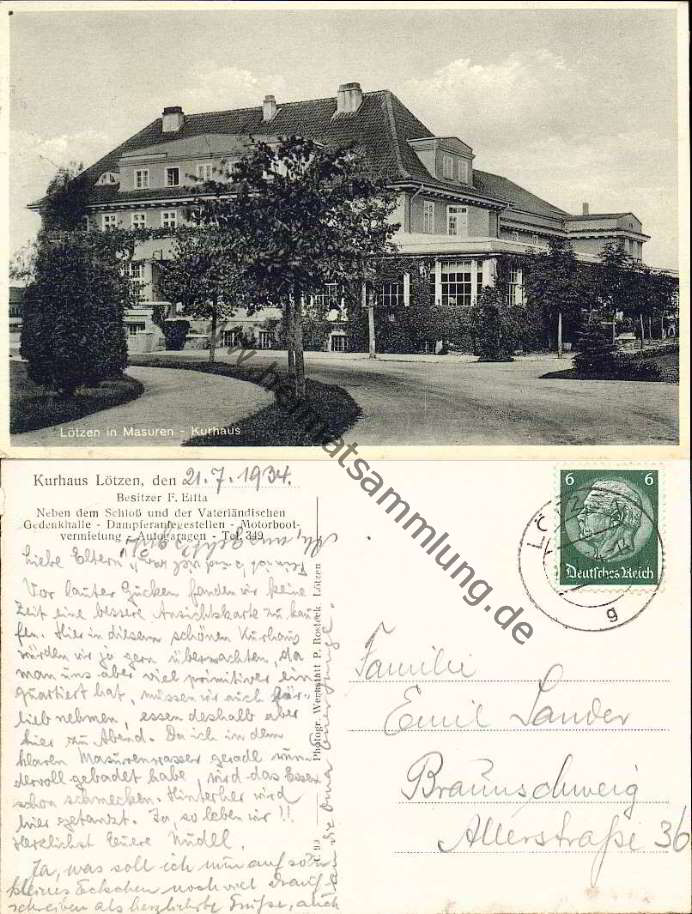 Lötzen in Masuren - Kurhaus
www.heimatsammlung.de
Kurhaus Lötzen, den 21.7.1934.
Besitzer F. Eitta
Neben dem Schloß und der Vaterländischen
Gedenkhalle - Dampferanlegestellen - Motorboot-
vermietung - Autogaragen - Tel. 349
Liebe Eltern,
Vor lauter Gucken fanden wir keine
Zeit eine bessere Ansichtskarte zu kau-
fen. Hier in diesem schönen Kurhaus
würden wir ja gern übernachten, da
man uns aber viel primitiver ein
quartiert hat, müssen wir auch für-
lieb nehmen, essen deshalb aber
hier zu Abend. Da ich in dem
klaren Masurenwasser gerade wun-
dervoll gebadet habe, wird das Essen
schon schmecken. Hinterher wird
hier getanzt. Ja, so leben wir!!
Herzlichst Euere Nudel.
Ja, was soll ich nun auf so'n
kleines Eckchen noch viel drauf
schreiben als herzlichste Grüße, auch
an die Oma
Photogr. Werkstatt P. Rosteck Lötzen
6 6
Deutsches Reich
LÖTZEN
g
Familie
Emil Sander
Braunschweig
Allerstraße 36